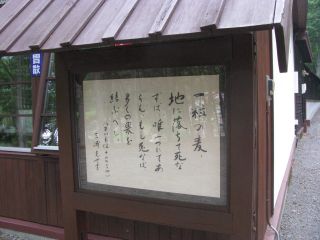 一粒の麦、
地に落ちて死な
ずば、唯一つにてあ
らん、もし死なば
多くの果を
結ぶべし
胃散